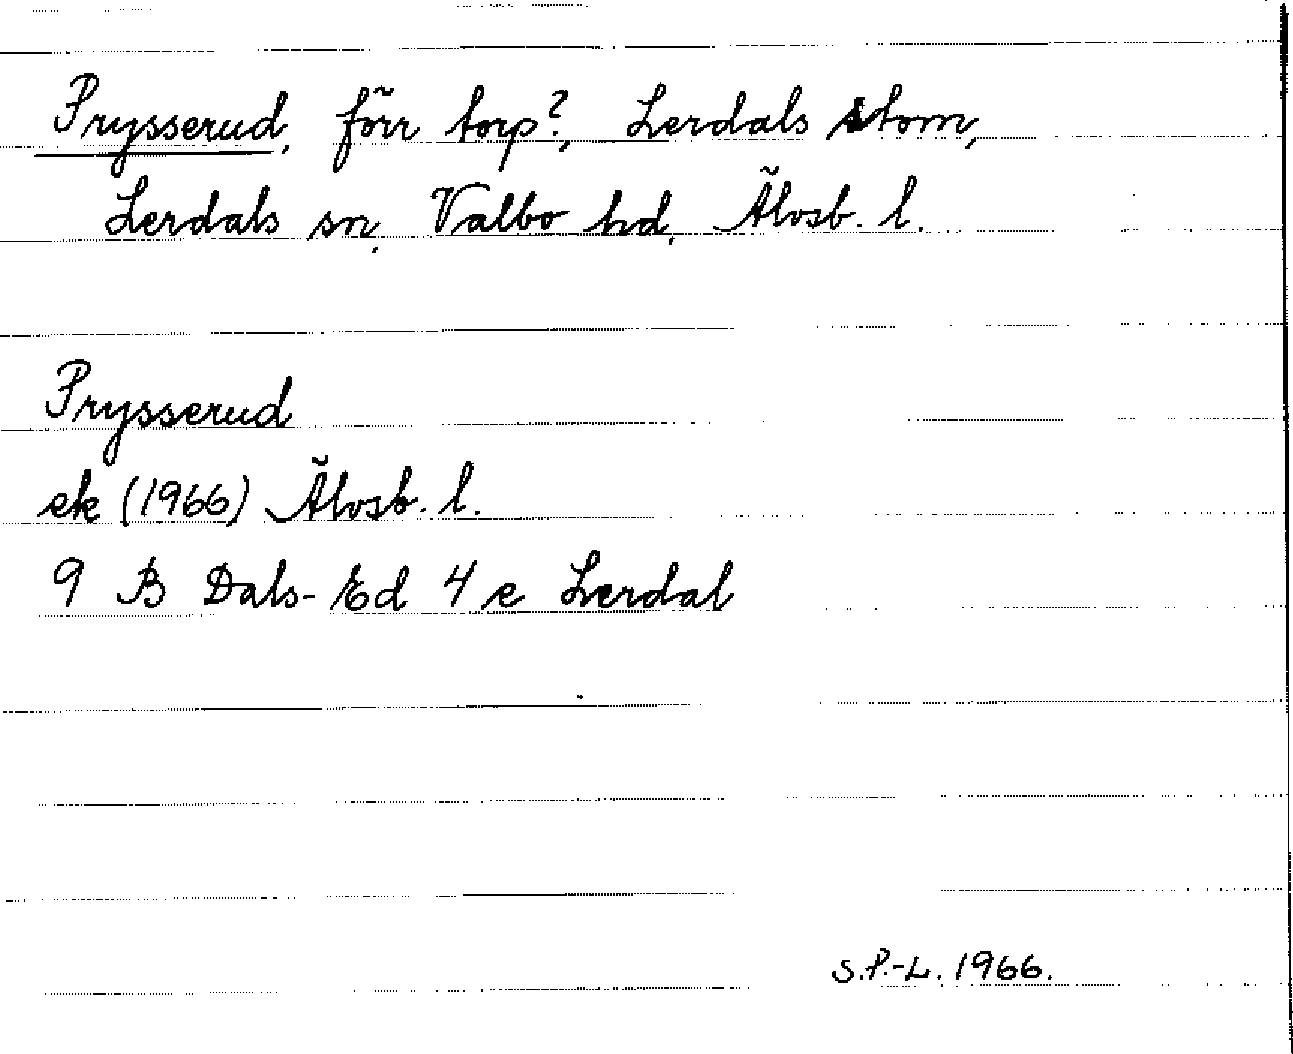 Prysserud, förr torp?, Lerdals stom,
Lerdals sn, Valbo hd, Älvsb. l.
Prysserud
ek (1966) Älvsb. l.
9 B Dals-Ed 4 e Lerdal
S.P.-L. 1966.